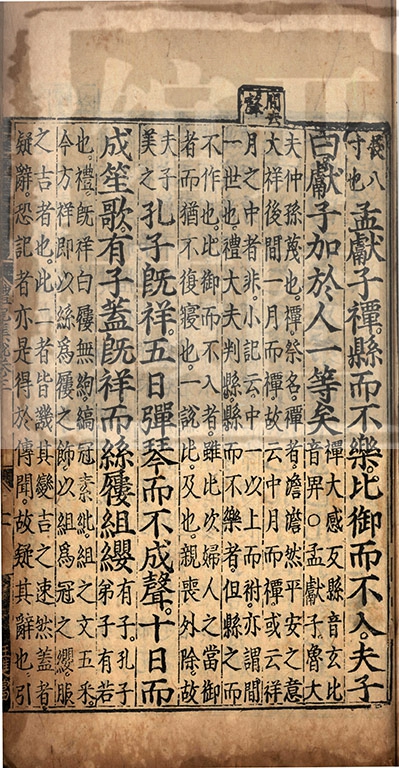 間去
聲
長八
寸也
孟獻子禫縣而不樂。比御而不入。夫子
曰獻子加於人一等矣
禫大感反縣音玄比
音畀○孟獻子魯大
夫仲孫蔑也。禫祭名。禫者澹澹然平安之意
大祥後間一月而禫。故云中月而禫。或云祥
月之中者非。小記云。中一以上而祔。亦謂間
一世也。禮大夫判縣縣而不樂者。但縣之而
不作也。比御而不入者。雖比次婦人之當御
者而猶不復寢也。一說比。及也。親喪外除。故
夫子
美之
孔子旣祥。五日彈琴而不成聲。十日而
成笙歌。有子蓋旣祥而絲屨組纓
有子。孔子
弟子有若
也。禮旣祥白屨無絇。縞冠素紕。組之文五采。
今方祥即以絲爲屨之飾。以組爲冠之纓。服
之吉者也。此二者皆譏其變吉之速。然蓋者
疑辭。恐記者亦是得於傳聞。故疑其辭也。引